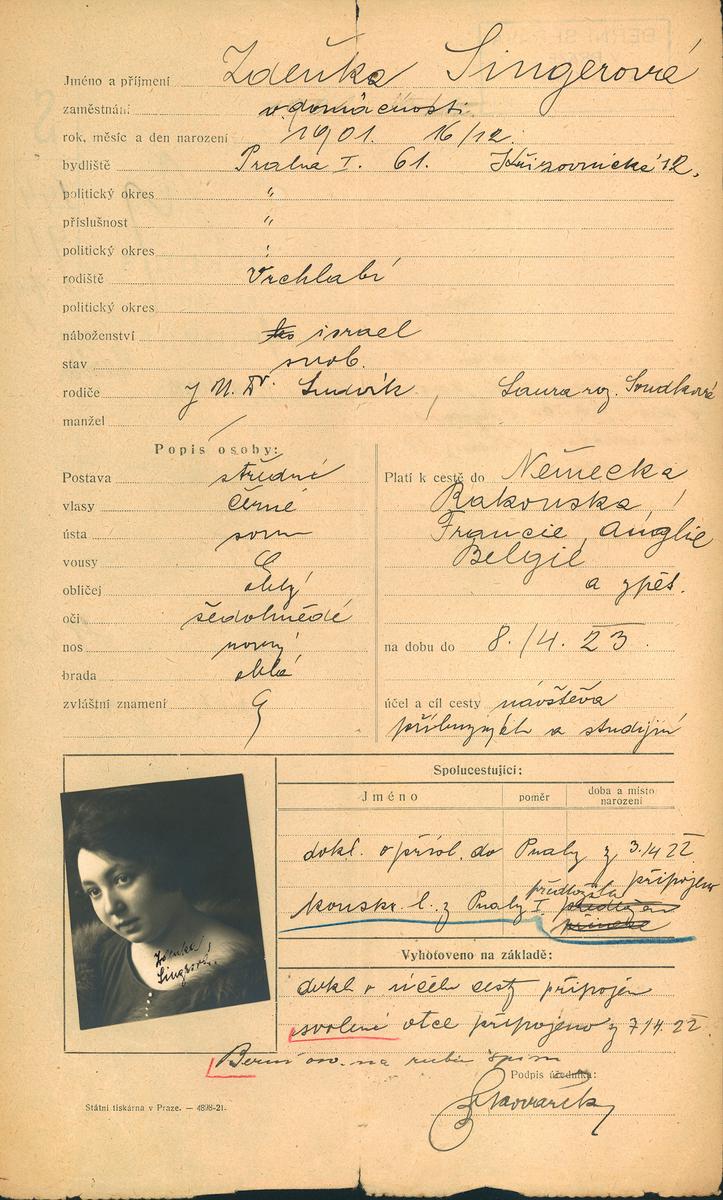 Jméno a příjmení Zdeňka Singerová
zaměstnání v domácnosti
rok, měsíc a den narození 1901. 16/12.
bydliště Praha I. 61. Křižovnická 12.
politický okres "
příslušnost "
politický okres "
rodiště Vrchlabí
politický okres
náboženství israel
stav svob.
rodiče JUDr. Ludvík, Laura roz. Soudková
manžel
Popis osoby:
Postava střední
vlasy černé
ústa
vousy
obličej oblý
oči šedohnědé
nos
brada oblá
zvláštní znamení
Platí k cestě do Německa
Rakouska,
Francie, Anglie
Belgie
a zpět.
na dobu do 8./4. 23
účel a cíl cesty návštěva
příbuzných a studijní
Zdeňka
Singerová
Spolucestující:
Jméno poměr doba a místo narození
dokl. o přísl. do Prahy z 3./4 22
připojeno
předložila
konskr. l. z Prahy I.
Vyhotoveno na základě:
dokl o účelu cesty připojen
svolení otce připojeno z 7/4. 22
Berní na rubu
Podpis úředníka:
Státní tiskárna v Praze. — 4898-21.